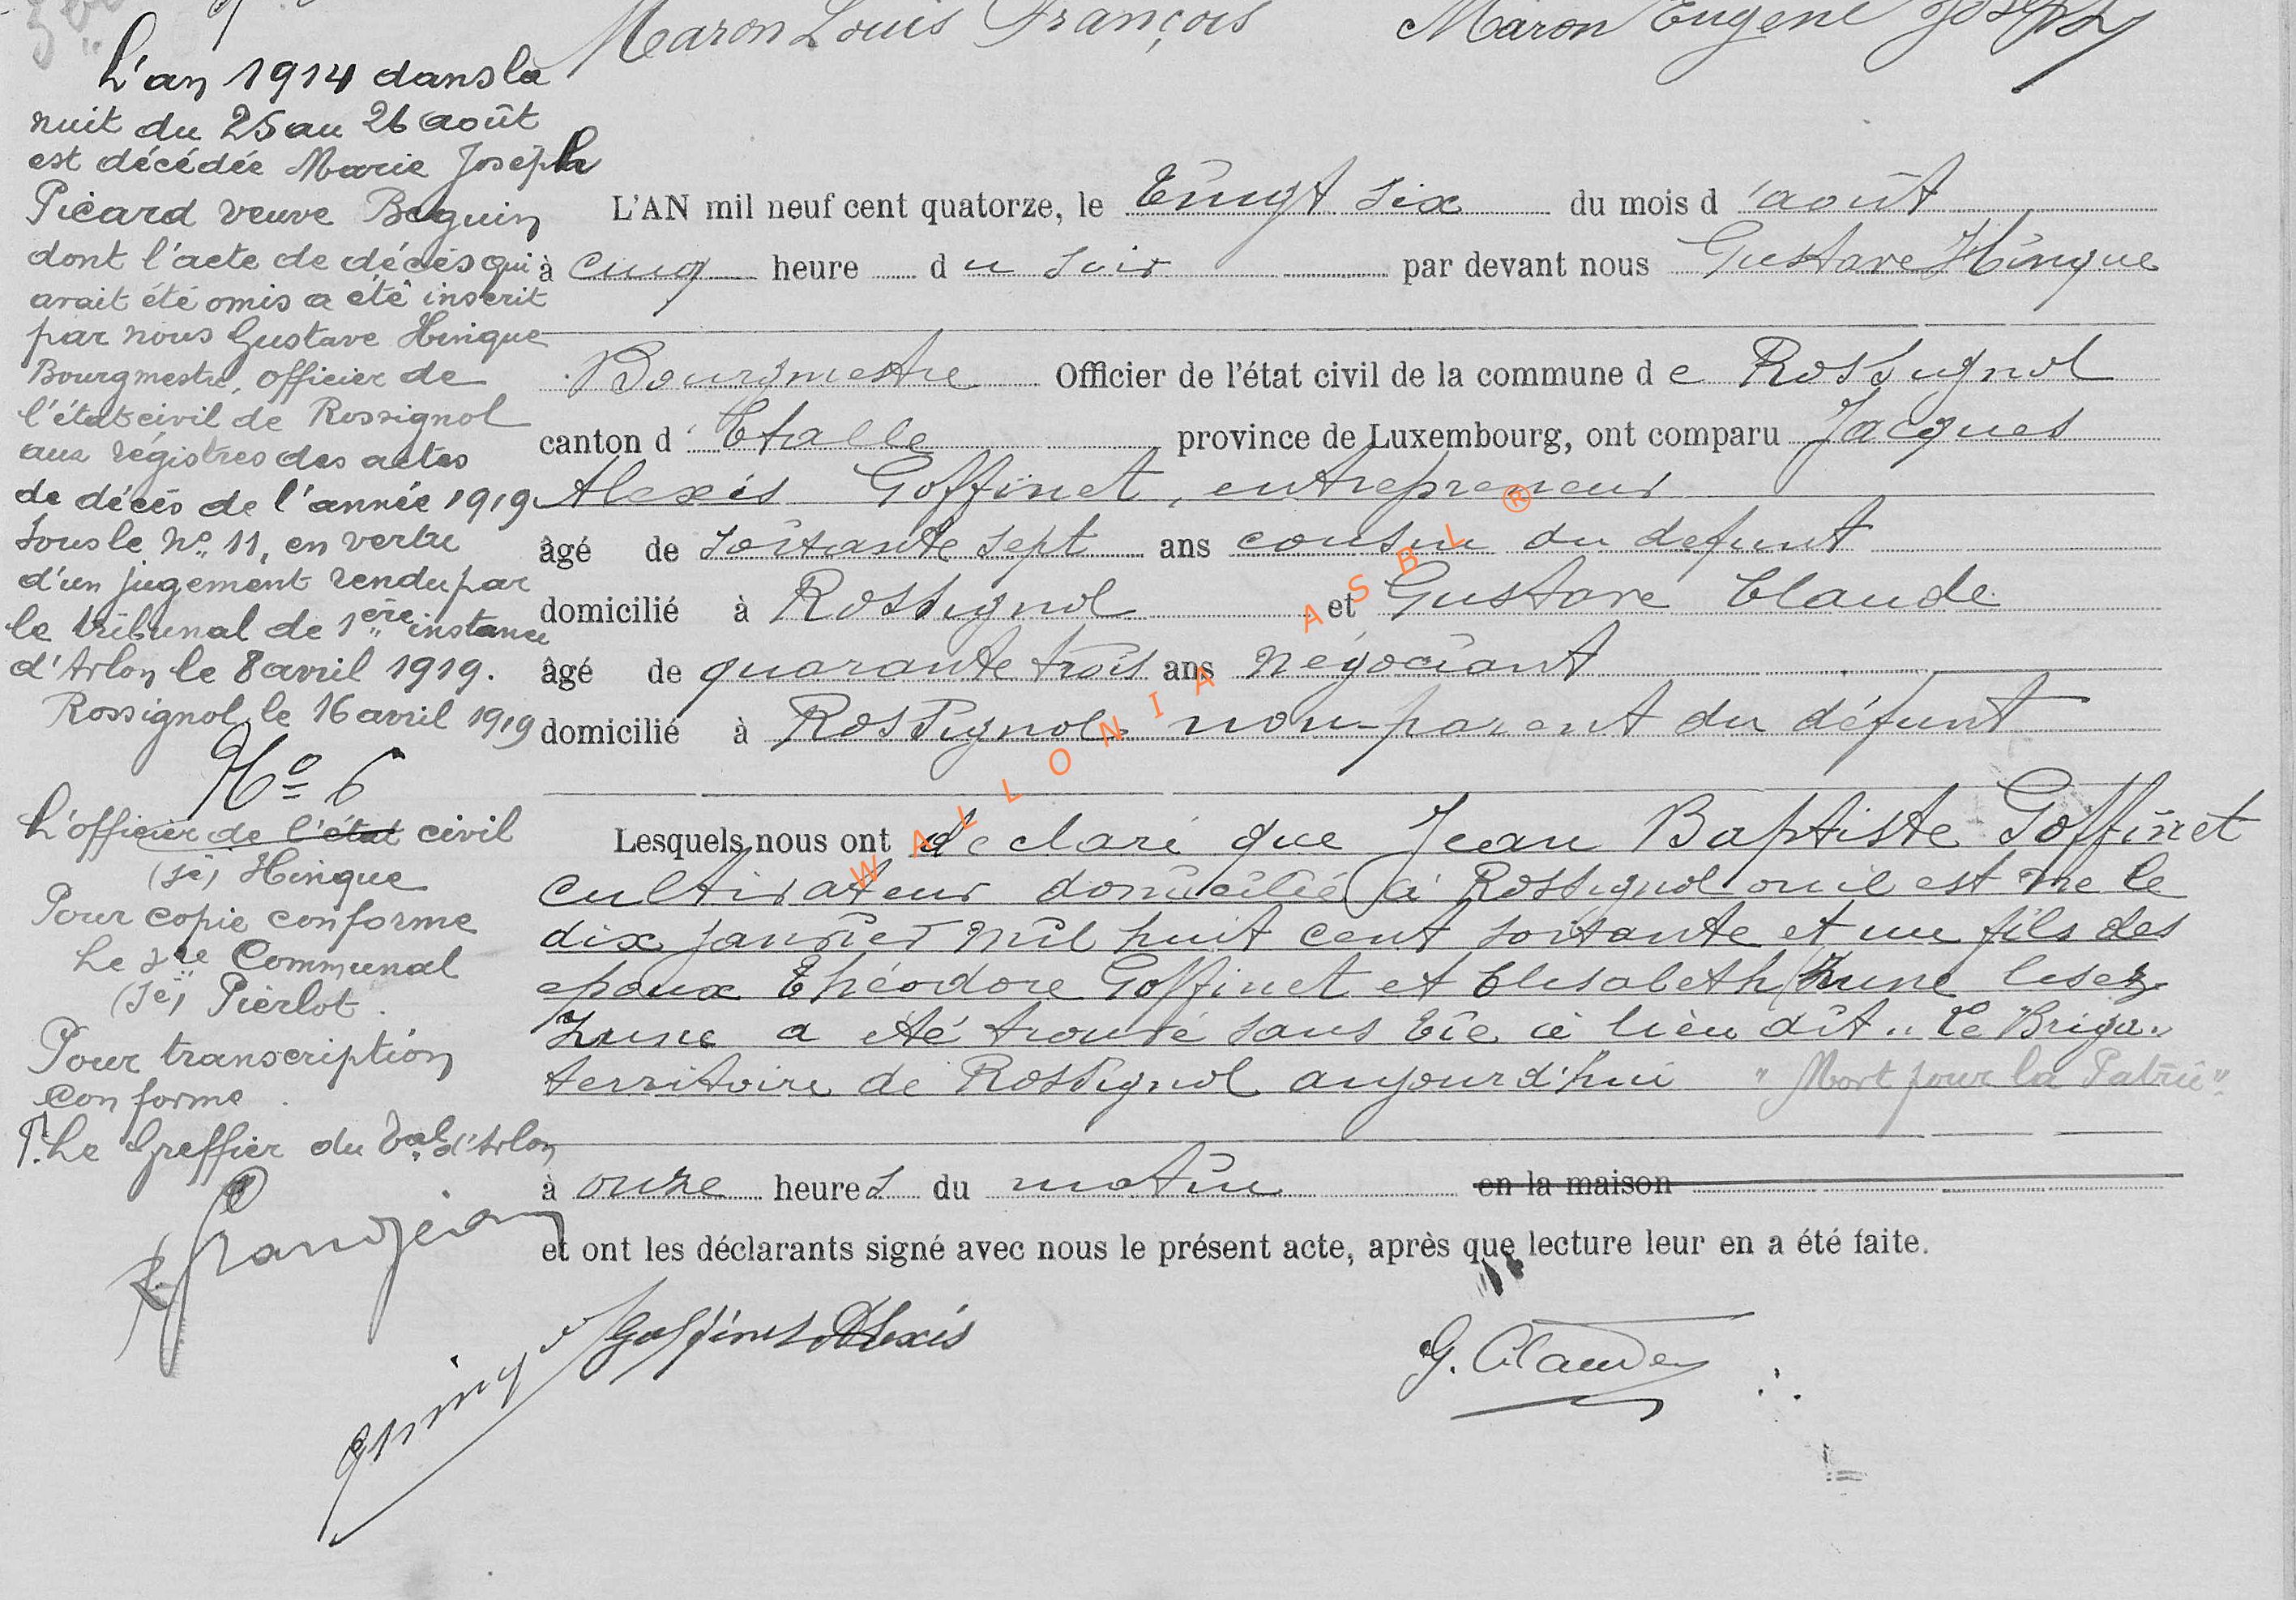 Maron Louis François Maron Eugene Joseph
L'an 1914 dans la
nuit du 25 au 26 août
est décédée Marie Joseph
Picard veuve Beguin
dont l'acte de décès qui
avait été omis a été inscrit
par nous Gustave Hinque
Bourgmestre, officier de
l'état civil de Rossignol
aux régistres des actes
de décès de l'année 1919
sous le No 11, en vertu
d'un jugement rendu par
le tribunal de 1ère instance
d'Arlon le 8 avril 1919.
Rossignol, le 16 avril 1919
No 6
L'officier de l'état civil
(sé) Hinque
Pour copie conforme
Le sre Communal
(sé) Pierlot.
Pour transcription
conforme.
P. Le Greffier du Tal d'Arlon
L'AN mil neuf cent quatorze, le vingt six du mois d'août
à cinq heure du soir par devant nous Gustave Hinque
Bourgmestre Officier de l'état civil de la commune de Rossignol
canton d'Etalle province de Luxembourg, ont comparu Jacques
Alexis Goffinet, entrepreneur
âgé de soixante sept ans cousin du defunt
domicilié à Rossignol et Gustave Claude
âgé de quarante trois ans négociant
domicilié à Rossignol non-parent du défunt
Lesquels nous ont declaré que Jean Baptiste Goffinet
cultivateur domicilié à Rossignol ou il est né le
dix janvier mil huit cent soixante et un fils des
epoux Théodore Goffinet et Elisabeth Zune lisez
Zune a été trouvé sans vie à lieu dit "Le Briga"
territoire de Rossignol aujourd'hui "Mort pour la Patrie"
à onze heures du matin en la maison
et ont les déclarants signé avec nous le présent acte, après que lecture leur en a été faite.
Goffinet Alexis
G. Claude
WALLONIA ASBL ®